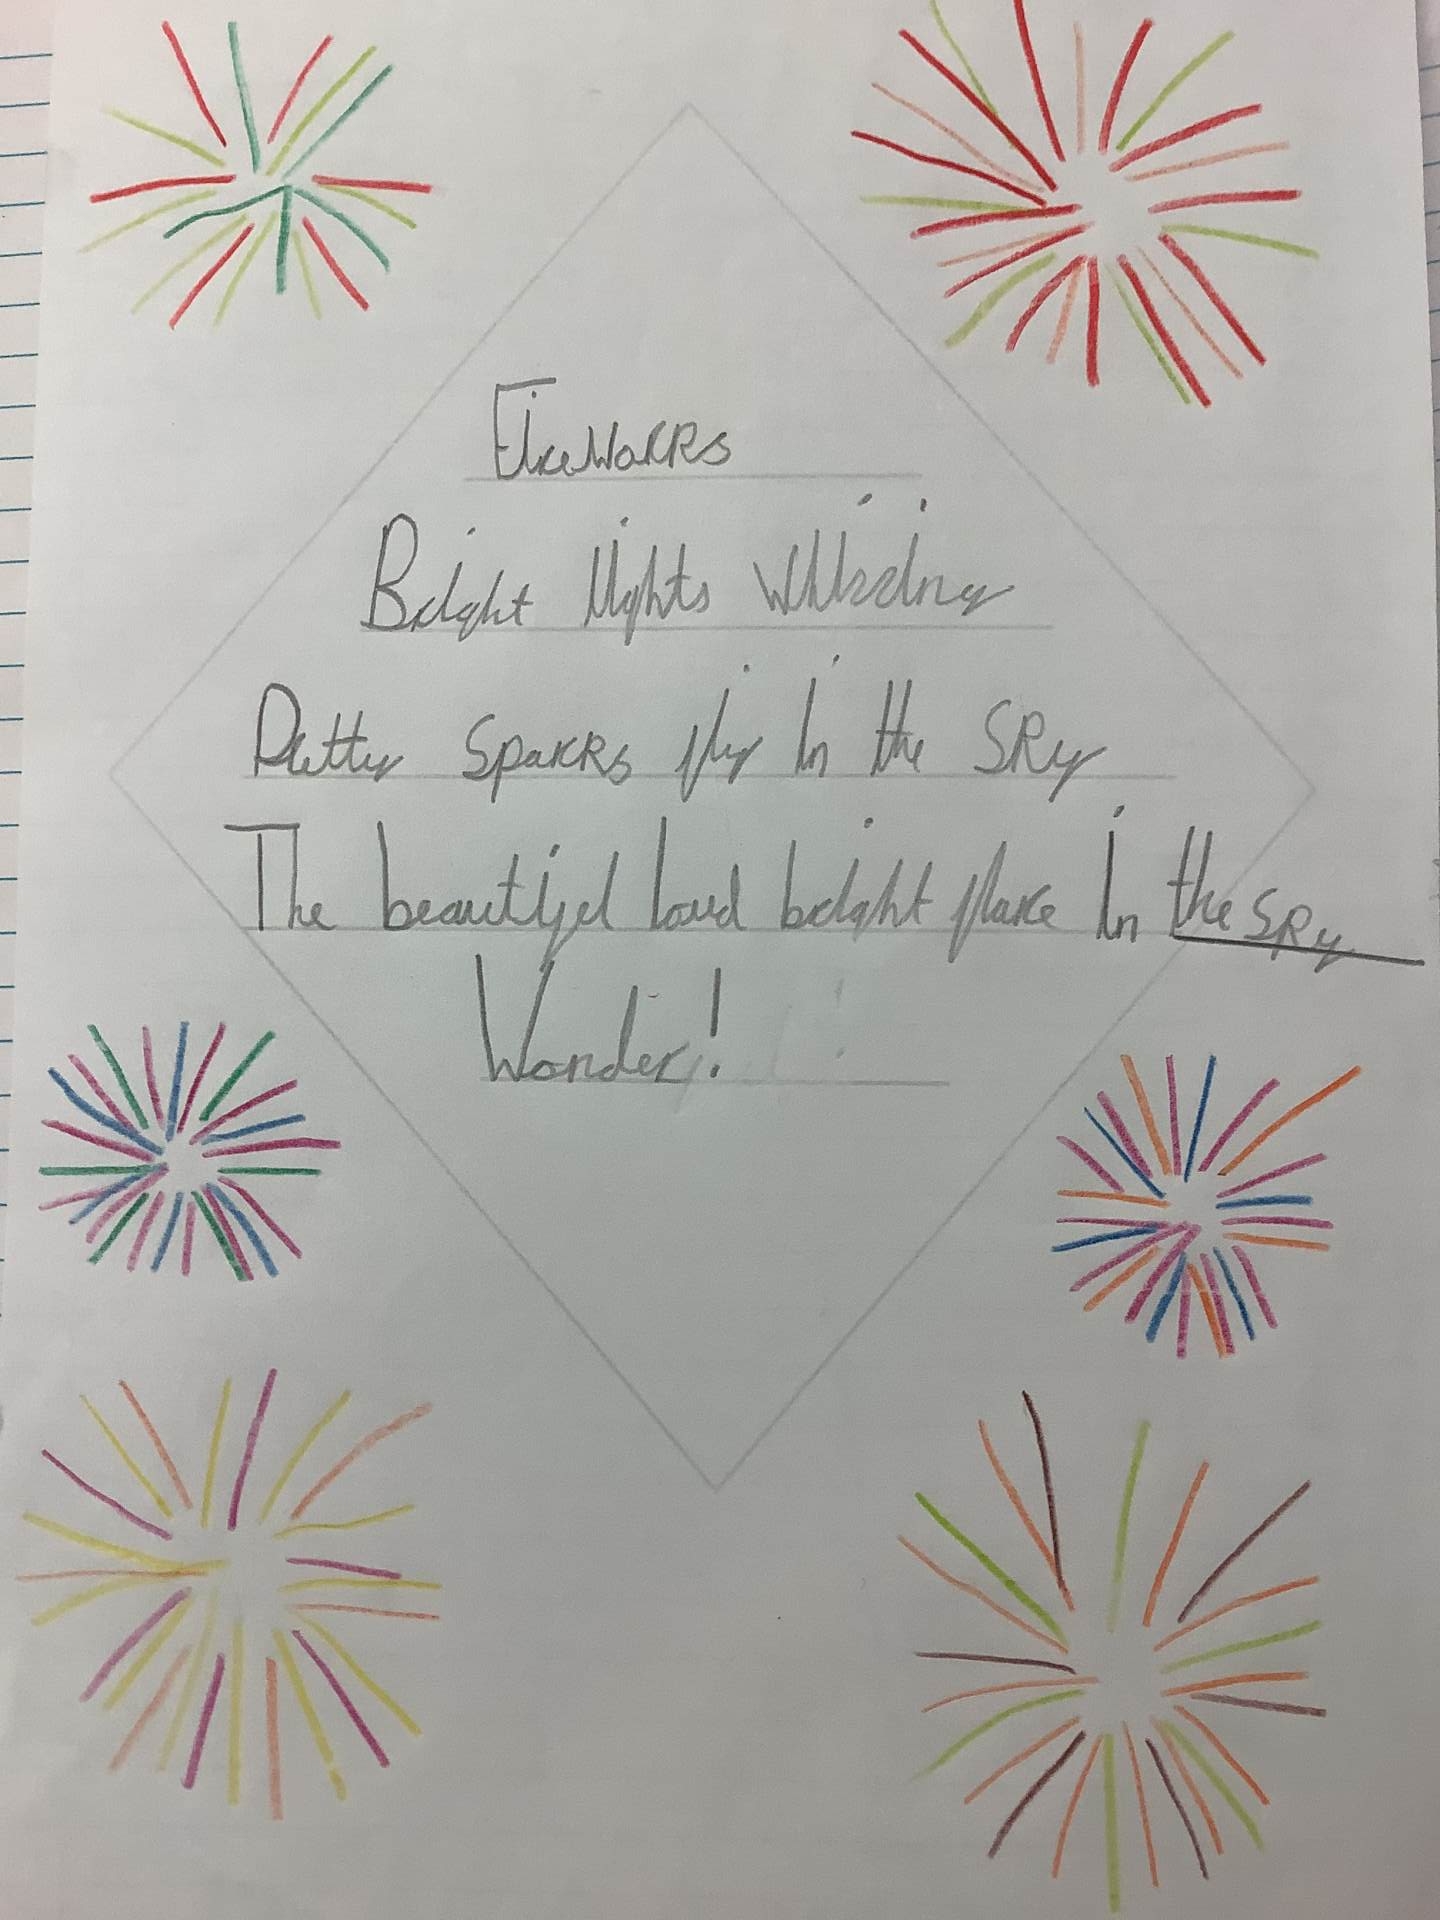 Fireworks
Bright lights whizzing
Pretty sparks fly in the sky
The beautiful loud bright flare in the sky
Wonder!